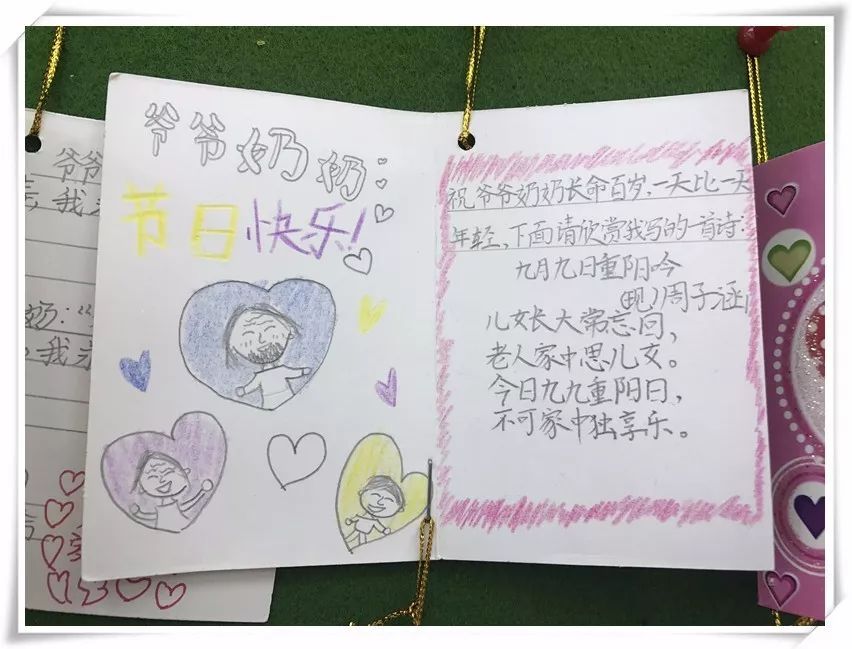 爷爷奶奶:
节日快乐!
祝爷爷奶奶长命百岁,一天比一天
年轻,下面请欣赏我写的一首诗:
九月九日重阳吟
(现)周子涵
儿女长大常忘回,
老人家中思儿女。
今日九九重阳日,
不可家中独享乐。
爷爷
我
奶:“
我